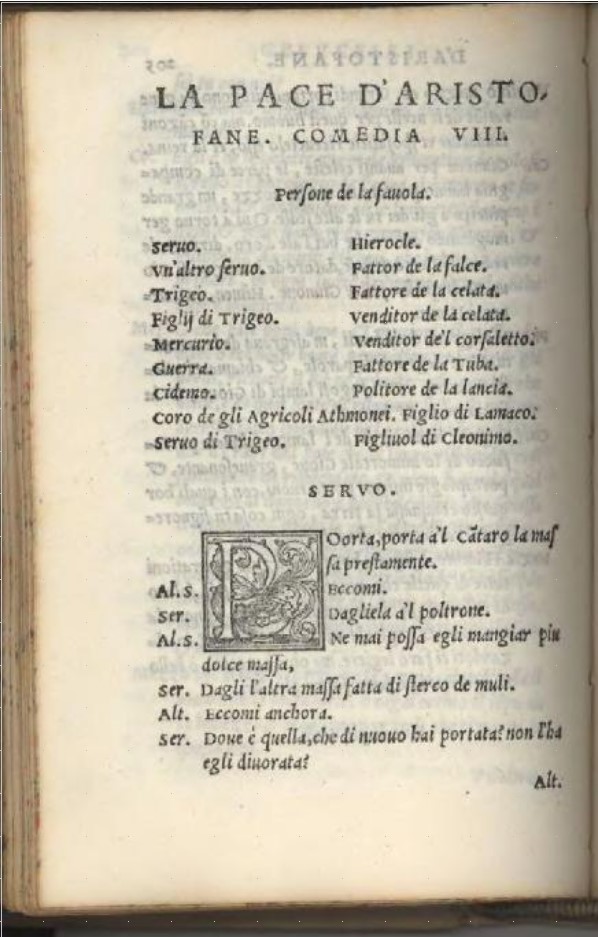 LA PACE D'ARISTO,
FANE. COMEDIA VIII.
Persone de la fauola.
Seruo. Hierocle.
Vn'altro seruo. Fattor de la falce.
Trigeo. Fattore de la celata.
Figlij di Trigeo. Venditor de la celata.
Mercurio. Venditor de'l corsaletto.
Guerra. Fattore de la Tuba.
Cidemo. Politore de la lancia.
Coro de gli Agricoli Athmonei. Figlio di Lamaco.
Seruo di Trigeo. Figliuol di Cleonimo.
SERVO.
POorta, porta a'l Cãtaro la mas
sa prestamente.
Al.S. Eccomi.
Ser. Dagliela a'l poltrone.
Al.S. Ne mai possa egli mangiar piu
dolce massa,
Ser. Dagli l'altra massa fatta di sterco de muli.
Alt. Eccomi anchora.
Ser. Doue è quella, che di nuouo hai portata? non l'ha
egli diuorata?
Alt.